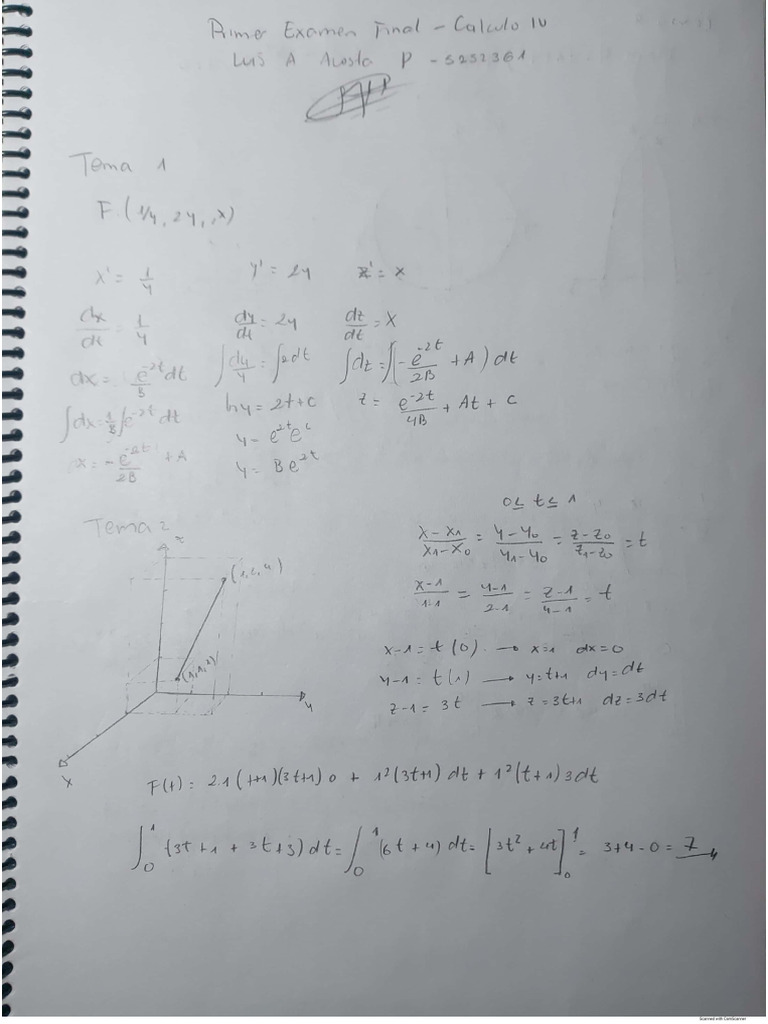 Primer Examen Final - Calculo IV
Luis A Acosta P - 5252361
Tema 1
F. (1/y, 2y, x)
x' = 1/y y' = 2y z' = x
dx/dt = 1/y dy/dt = 2y dz/dt = x
dx = e^-2t/B dt ∫dy/y = ∫2dt ∫dz = ∫(-e^-2t/2B + A) dt
∫dx = 1/B ∫e^-2t dt lny = 2t+c z = e^-2t/4B + At + c
x = -e^-2t/2B + A y = e^2t e^c
y = Be^2t
0 ≤ t ≤ 1
Tema 2
x-x1/x1-x0 = y-y0/y1-y0 = z-z0/z1-z0 = t
z
(1,2,4)
x-1/1-1 = y-1/2-1 = z-1/4-1 = t
x-1 = t(0) → x=1 dx=0
(1,1,1)
y-1 = t(1) → y=t+1 dy=dt
y
z-1 = 3t → z=3t+1 dz=3dt
x
F(t) = 2.1(t+1)(3t+1)0 + 1²(3t+1)dt + 1²(t+1)3dt
∫₀¹(3t+1+3t+3)dt = ∫₀¹(6t+4)dt = [3t²+4t]₀¹ = 3+4-0 = 7
Scanned with CamScanner